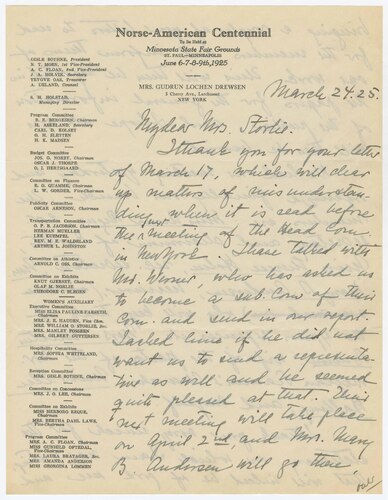 Norse-American Centennial
To Be Held at
Minnesota State Fair Grounds
ST. PAUL—MINNEAPOLIS
June 6-7-8-9th, 1925
MRS. GUDRUN LOCHEN DREWSEN
5 Cherry Ave., Larchmont
NEW YORK
GISLE BOTHNE, President
N. T. MOEN, 1st Vice-President
A. C. FLOAN, 2nd Vice-President
J. A. HOLVIK, Secretary
TRYGVE OAS, Treasurer
A. UELAND, Counsel
S. H. HOLSTAD,
Managing Director
Program Committee
B. E. BERGESEN, Chairman
H. ASKELAND, Secretary
CARL D. KOLSET
O. H. SLETTEN
H. E. MADSEN
Budget Committee
JOS. G. NORBY, Chairman
OSCAR J. THORPE
O. I. HERTSGAARD
Committee on Finance
E. G. QUAMME, Chairman
L. W. GORDER, Vice-Chairman
Publicity Committee
OSCAR ARNESON, Chairman
Transportation Committee
O. P. B. JACOBSON, Chairman
HERMAN MUELLER
LEE KUEMPEL
REV. M. E. WALDELAND
ARTHUR L. JOHNSTON
Committee on Athletics
ARNOLD C. OSS, Chairman
Committee on Exhibits
KNUT GJERSET, Chairman
OLAF M. NORLIE
THEODORE C. BLEGEN
WOMEN'S AUXILIARY
Executive Committee
MISS ELISA PAULINE FARSETH,
Chairman
MRS. J. E. HAUGEN, Vice Chm.
MRS. WILLIAM O. STORLIE, Sec.
MRS. MANLEY FOSSEEN
MRS. GILBERT GUTTERSEN
Hospitality Committee
MRS. SOPHIA WETTELAND,
Chairman
Reception Committee
MRS. GISLE BOTHNE, Chairman
Committee on Concessions
MRS. J. O. LEE, Chairman
Committee on Exhibits
MISS HERBORG REQUE,
Chairman
MRS. BERTHA DAHL LAWS,
Vice-Chairman
Program Committee
MRS. A. C. FLOAN, Chairman
MISS GUNHILD OPTEDAL,
Vice-Chairman
MRS. LAURA BRATAGER, Sec.
MRS. AMANDA ANDERSON
MISS GEORGINA LOMMEN
March 24. 25.
My dear Mrs. Storlie.
I thank you for your letter
of March 17, which will clear
up matters of misunderstan-
ding when it is read before
the next meeting of the Head Com
in New York. I have talked with
Mr. Werner, who has asked us
to become a sub. Com of their
Com. and send in our report.
I asked him if he did not
want us to send a representa-
tive as well and he seemed
quite pleased at that. Their
next meeting will take place
on April 2nd and Mrs. Mary
B Andersen will go there,